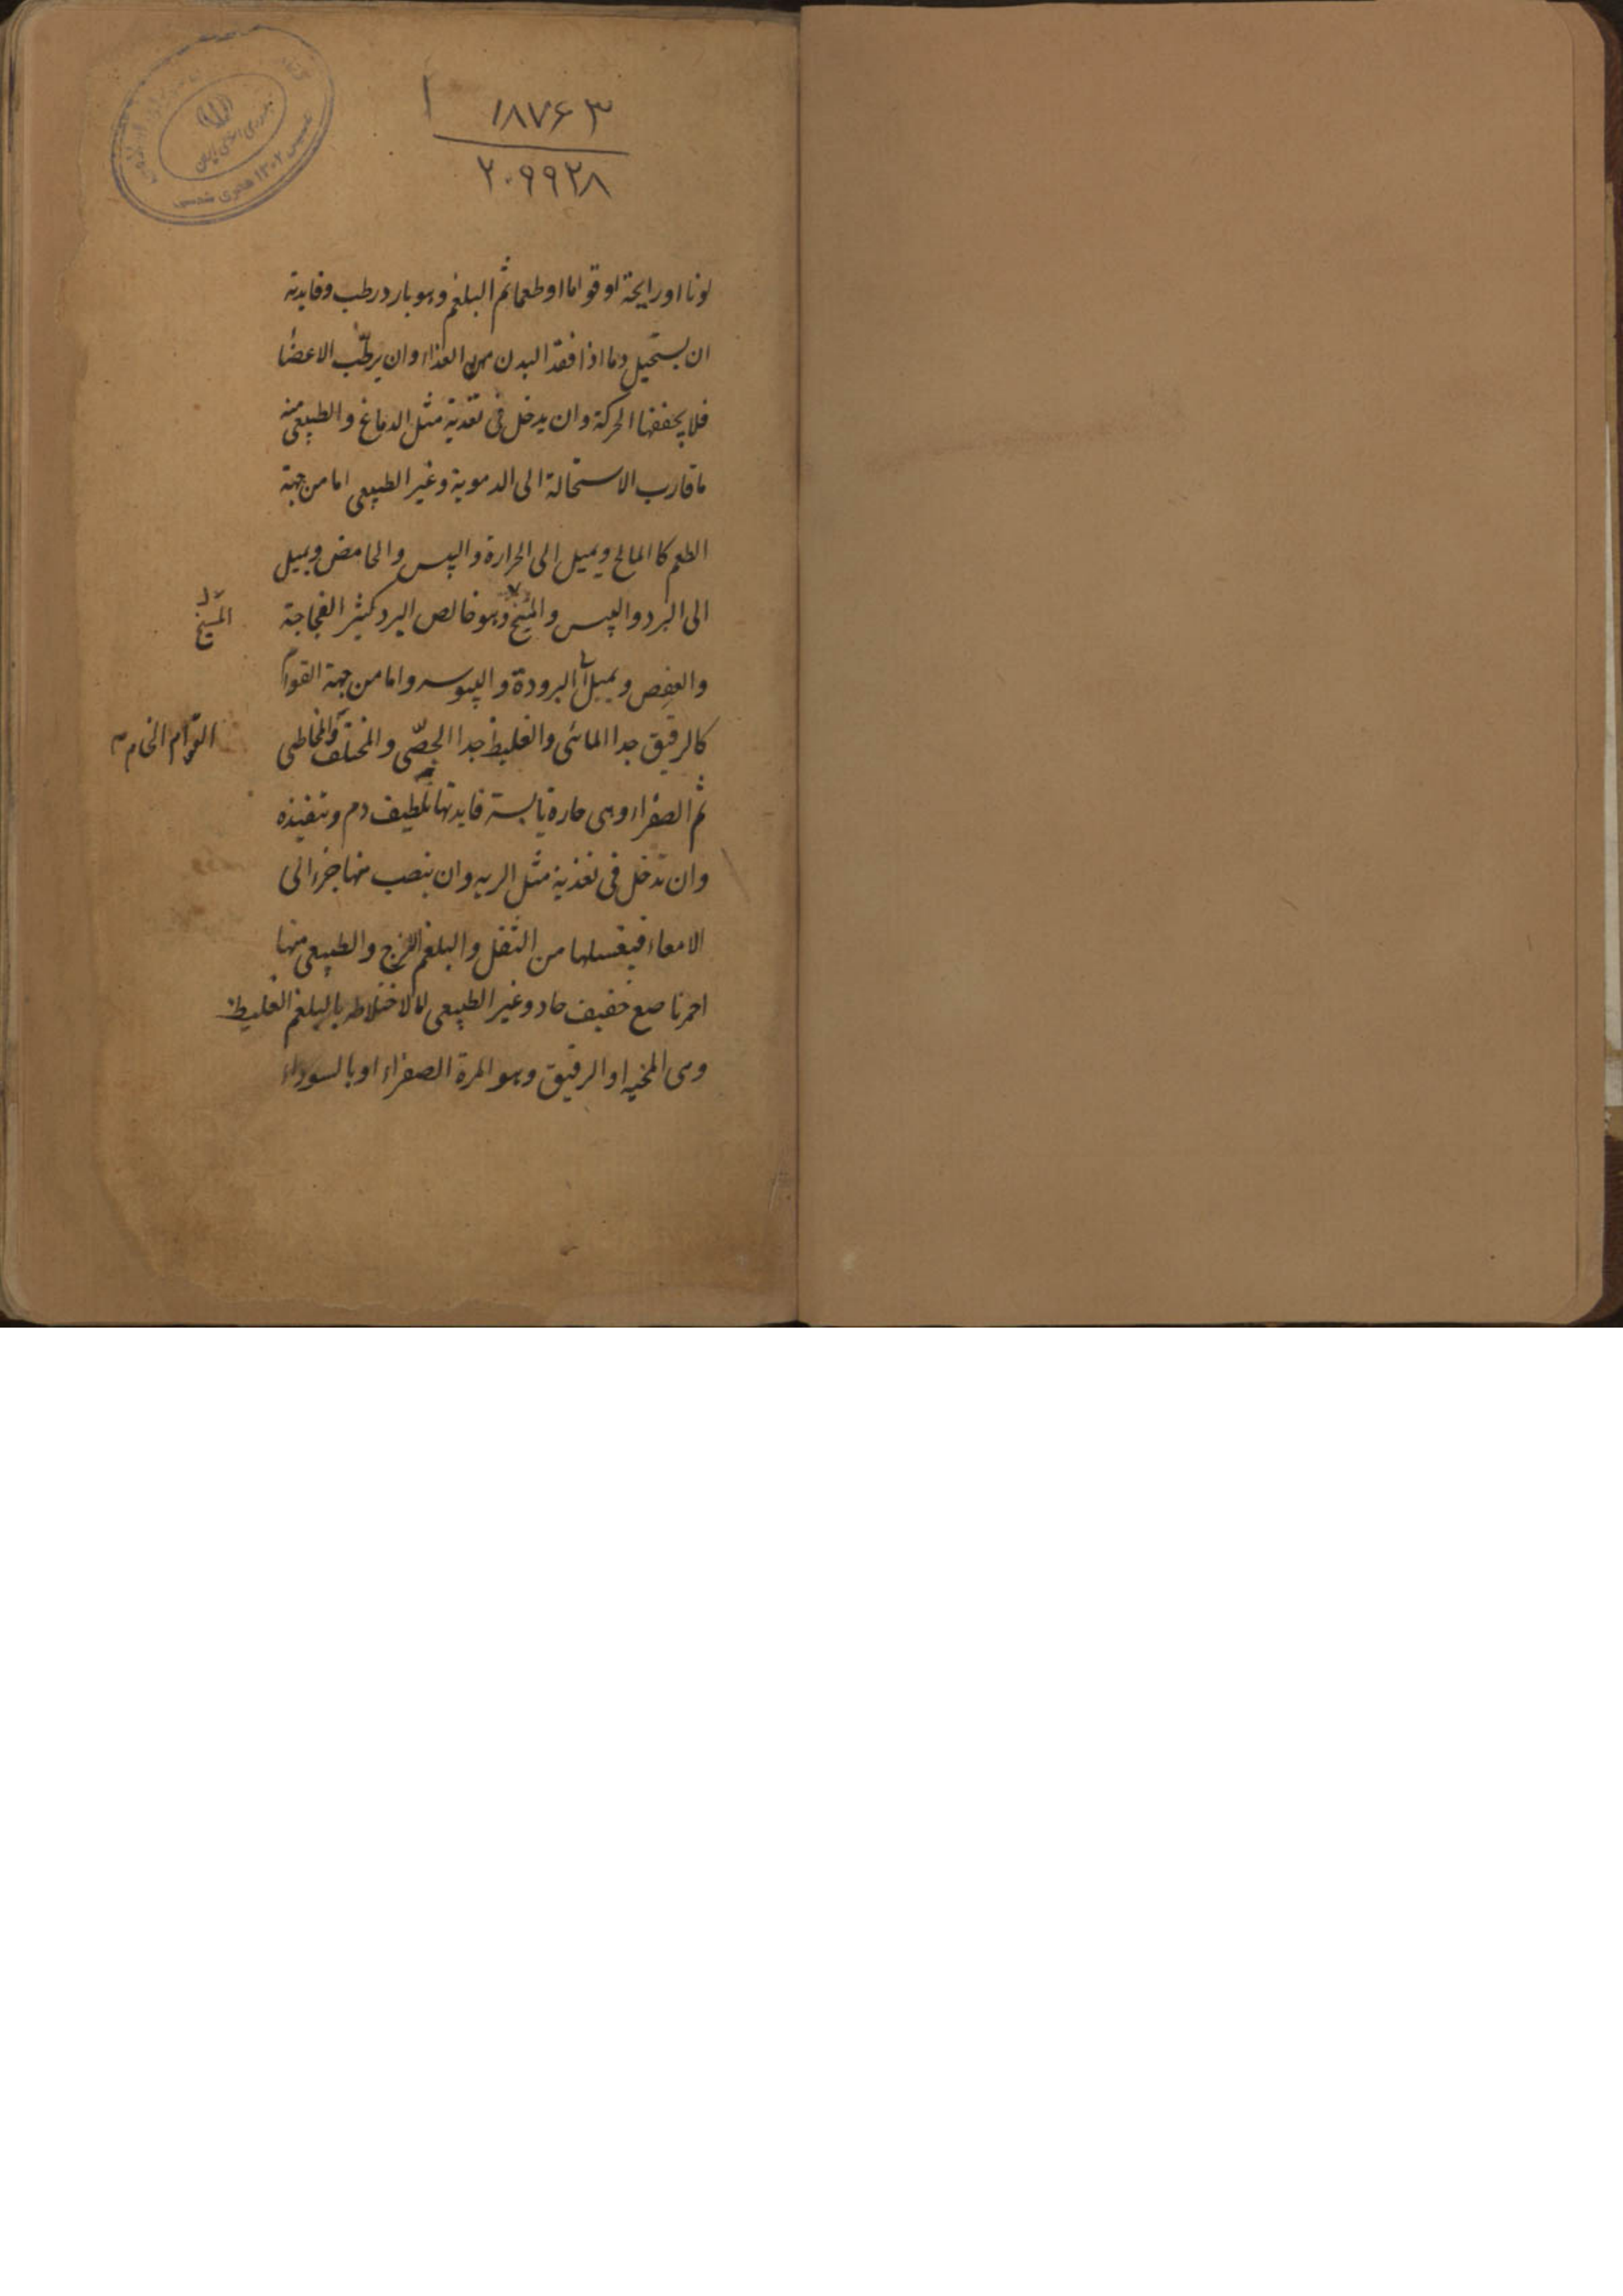 ۱۸۷۶۳
۲۰۹۹۲۸
لونا او رایحة او قواما او طعما ثم البلغم وهو بارد رطب وفایدته
ان یستحیل دما اذا فقد البدن من الغذاء وان یرطّب الاعضا
فلا یجففها الحرکة وان یدخل فی تغذیة مثل الدماغ والطبیعی منه
ما قارب الاستحالة الی الدمویة وغیر الطبیعی اما من جهة
الطعم کا المالح ویمیل الی الحرارة والیبس والحامض ویمیل
الی البرد والیبس والمسیخ وهو خالص البرد کثیر الفجاجة
المسیخ
والعفص ویمیل الی البرودة والیبوسه واما من جهة القوام
کالرقیق جدا المائی والغلیظ جدا الجصّی والمختلف والمخاطی
القوام الخام
ثم الصفراء وهی حارة یابسة فایدتها تلطیف دم وتنفیذه
وان تدخل فی تغذیة مثل الریه وان ینصب منها جزء الی
الامعاء فیغسلها من الثفل والبلغم اللزج والطبیعی منها
احمر ناصع خفیف حاد وغیر الطبیعی اما لاختلاطه بالبلغم الغلیظ
وهی المخیه او الرقیق وهو المرة الصفراء او بالسوداء
جمهوری اسلامی ایران
تاسیس ۱۳۰۲ هجری شمسی